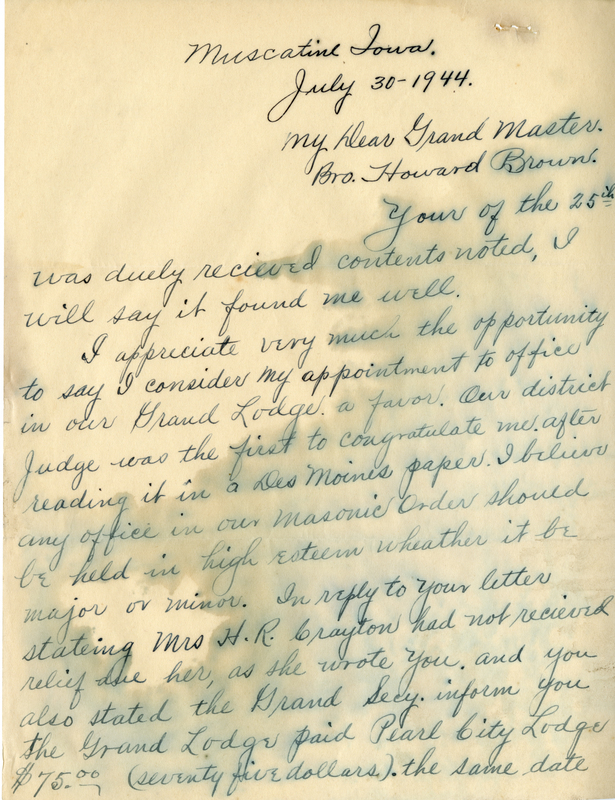 Muscatine Iowa.
July 30-1944.
My Dear Grand Master.
Bro. Howard Brown.
Your of the 25th
was duely recieved contents noted, I
will say it found me well.
I appreciate very much the opportunity
to say I consider my appointment to office
in our Grand Lodge. a favor. Our district
Judge was the first to congratulate me after
reading it in a Des Moines paper. I believe
any office in our Masonic Order should
be held in high esteem wheather it be
major or minor. In reply to your letter
stateing Mrs H.R. Crayton had not recieved
relief due her, as she wrote you. and you
also stated the Grand Secy. inform you
the Grand Lodge paid Pearl City Lodge
$75.00 (seventy five dollars). the same date